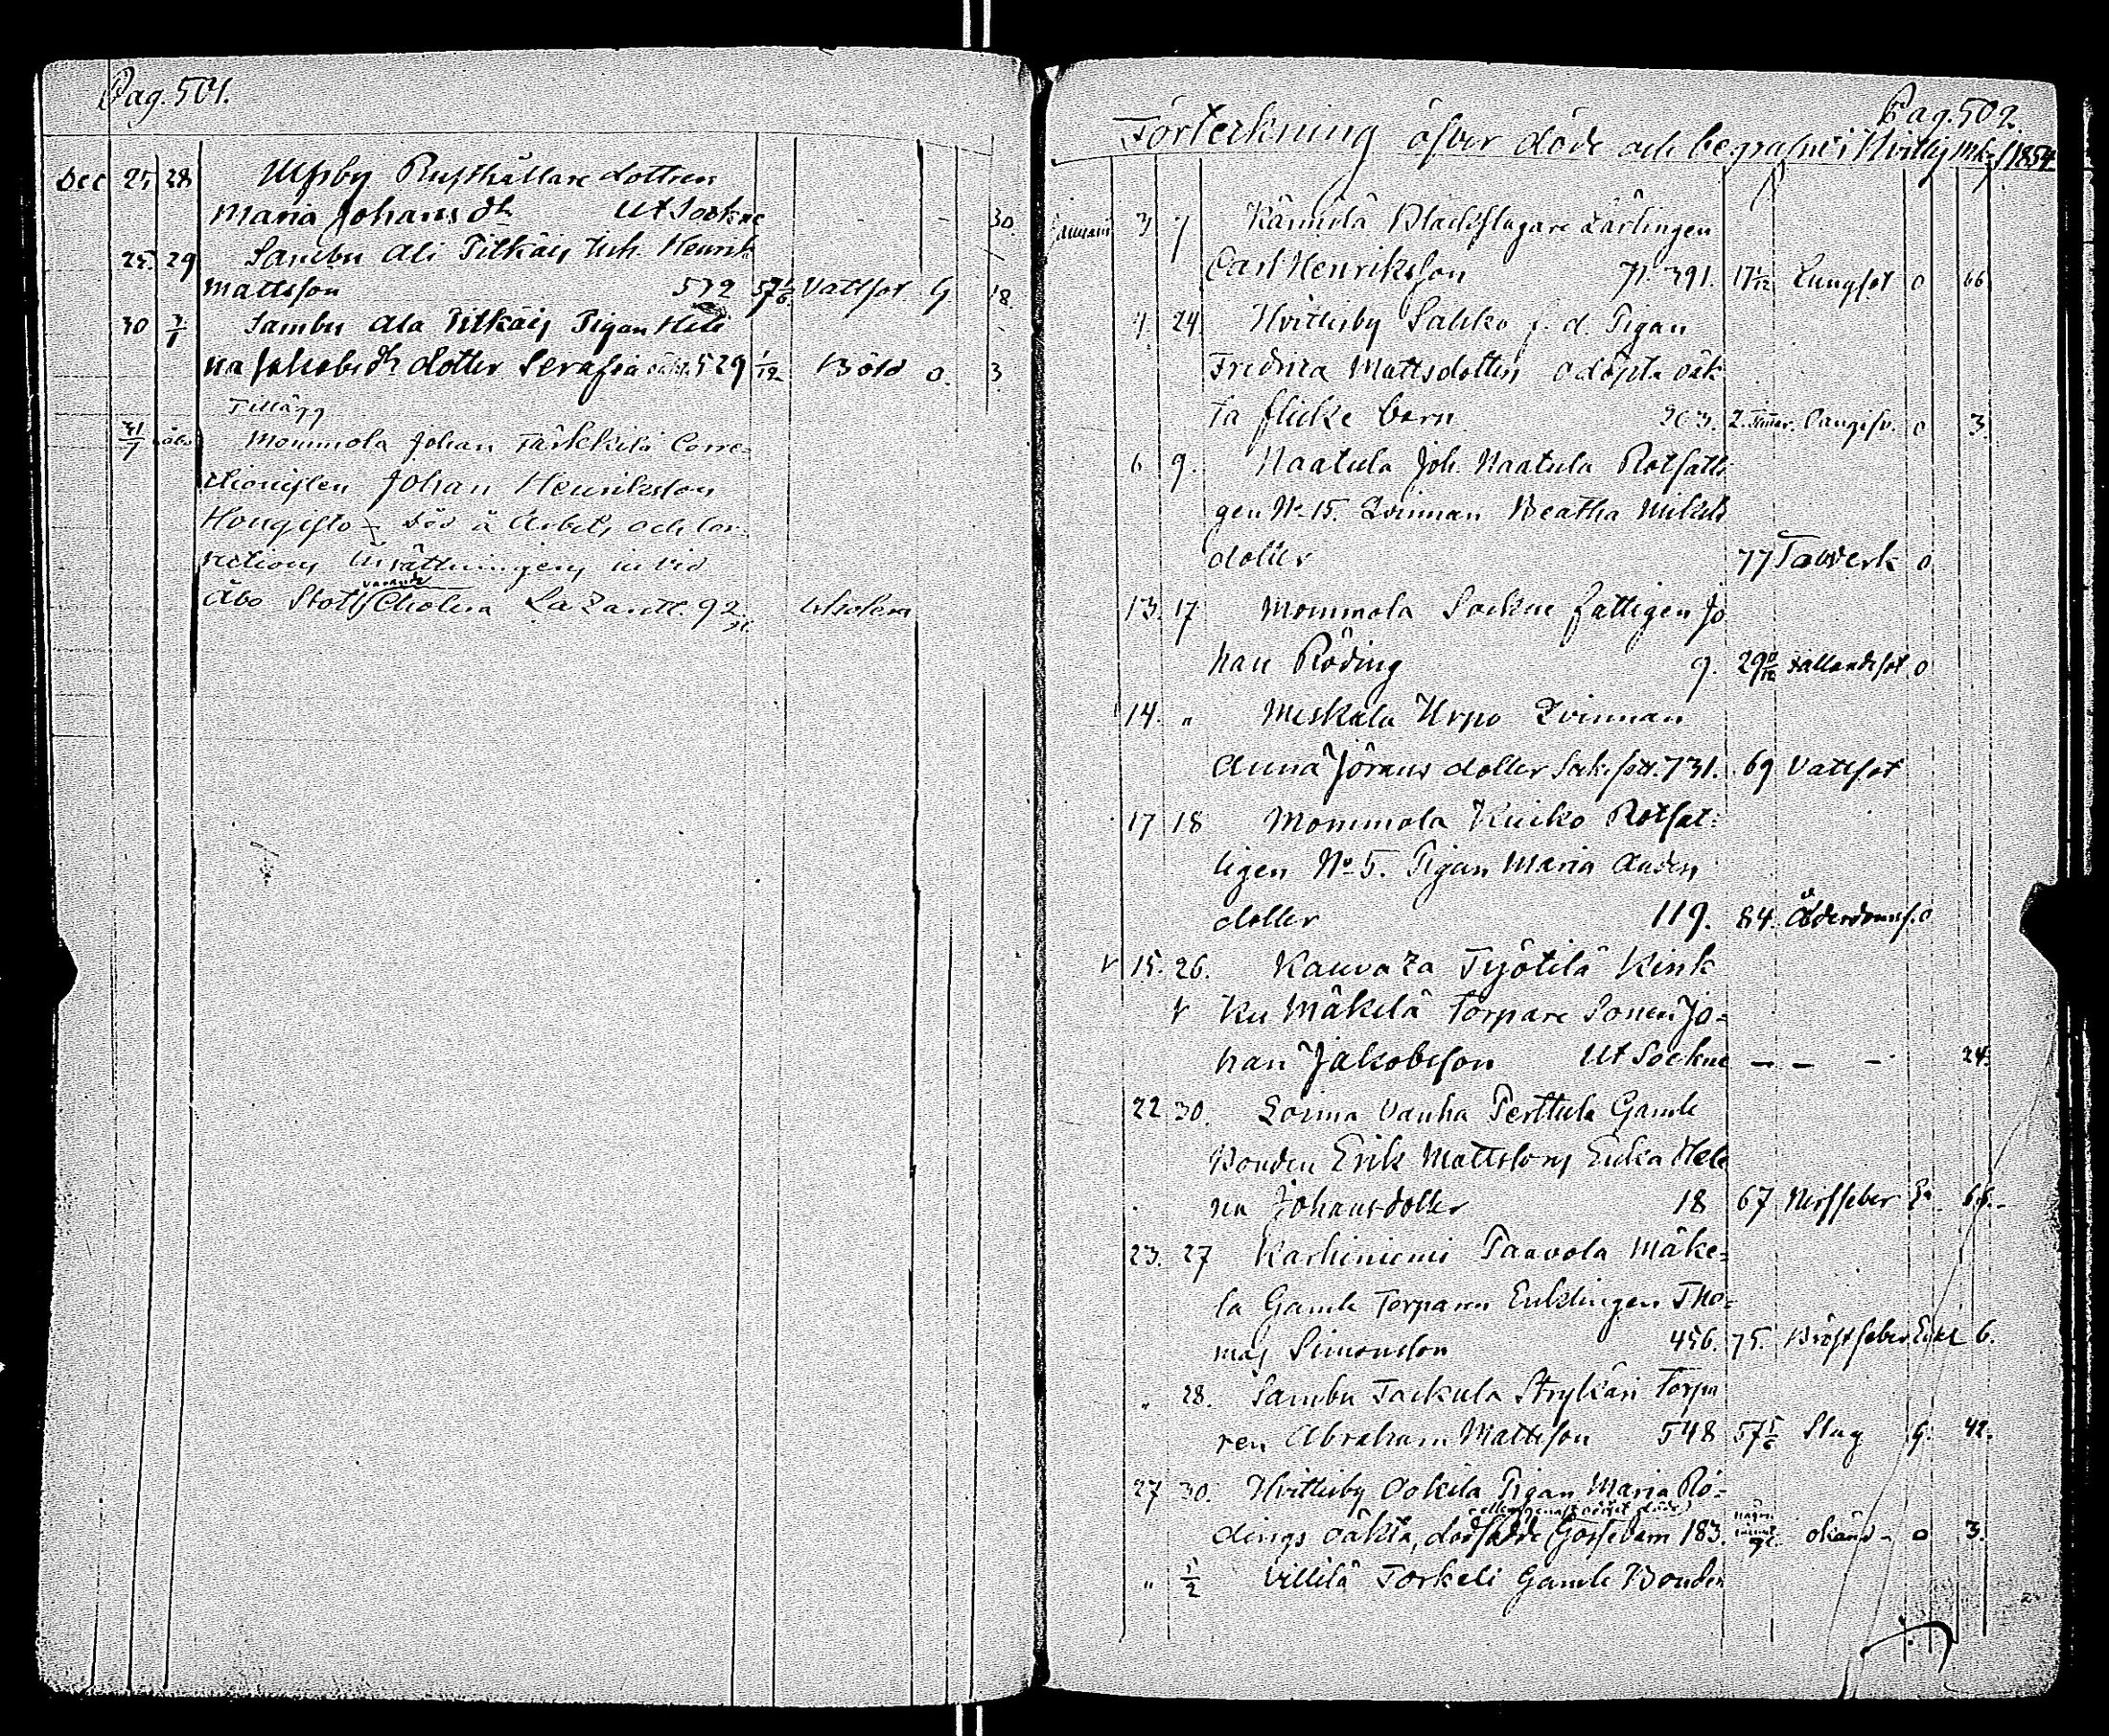 Pag. 501.
Dec 25 28 Ulfsby Rusthållare dottren
Maria Johans dr Ut Sockne - 30.
25. 29 Sambu Ali Pitkäis Inh. Henrik
Mattsson 532 57 1/6 Vattsot G 18.
30 3/1 Sambu Ala Pitkäis Pigan Hele
na Jakobs dr dotter Serafia oäkt. 529 1/12 Bröld o. 3
Tillägg
31/7 Åbo Mommola Johan Tärkkilä Corre-
ctionisten Johan Henriksson
Hongisto död å Arbets och Cor-
rections Inrättningens in vid
Åbo Slott varande Cholera Lazarett. 92.
Pag. 502.
Förteckning öfver döde och begrafne i Hvittis Mk. f 1854.
Januari 3 7 Kännölä Blackslagare Lärlingen
Carl Henriksson 71. 391. 17 1/12 Lungsot o 66
4. 24 Hvittisby Sahko f. d. Pigan
Fredrica Mattsdotters odöpta oäk
ta flicke barn 263. 2. Timar. Oangifv. o 3.
6 9. Naatula Joh. Naatula Rotfatti
gen No 15. Qvinnan Beatha Mikels
dotter 77 Tandverk o
13. 17 Mommola Sockne fattigen Jo
han Röding 9. 29 11/12 Fallandesot o
14. " Meskala Urpo Qvinnan
Anna Jörans dotter Socknfatt. 731. 69 Vattsot
17 18 Mommola Kuiko Rotfat-
tigen No 5. Pigan Maria Anders
dotter 119. 84. Ålderdomsf. o
V 15. 26. Kauvaza Työtilä Kink
V ku Mäkelä Torpare Sonen Jo-
han Jakobsson Ut Sockne — — - 24.
22 30. Loima Vanha Perttula Gamle
Bonden Erik Mattssons Enka Hele
na Johansdotter 18 67 Nerffeber En 66.-
23. 27 Karhiniemi Paavola Mäke-
lä Gamle Torparen Enklingen Tho-
mas Simonsson 456. 75. Bröstfeber Enkl 6.
" 28. Sambu Tackula Strykäri Torpa
ren Abraham Mattsson 548 57 5/6 Slag G. 42.
27 30. Hvittisby Ookila Pigan Maria Rö-
dings oäkta, dödfödde Gossebarn 183. okänd - o 3.
" 1/2 Villilä Torkeli Gamle Bonden